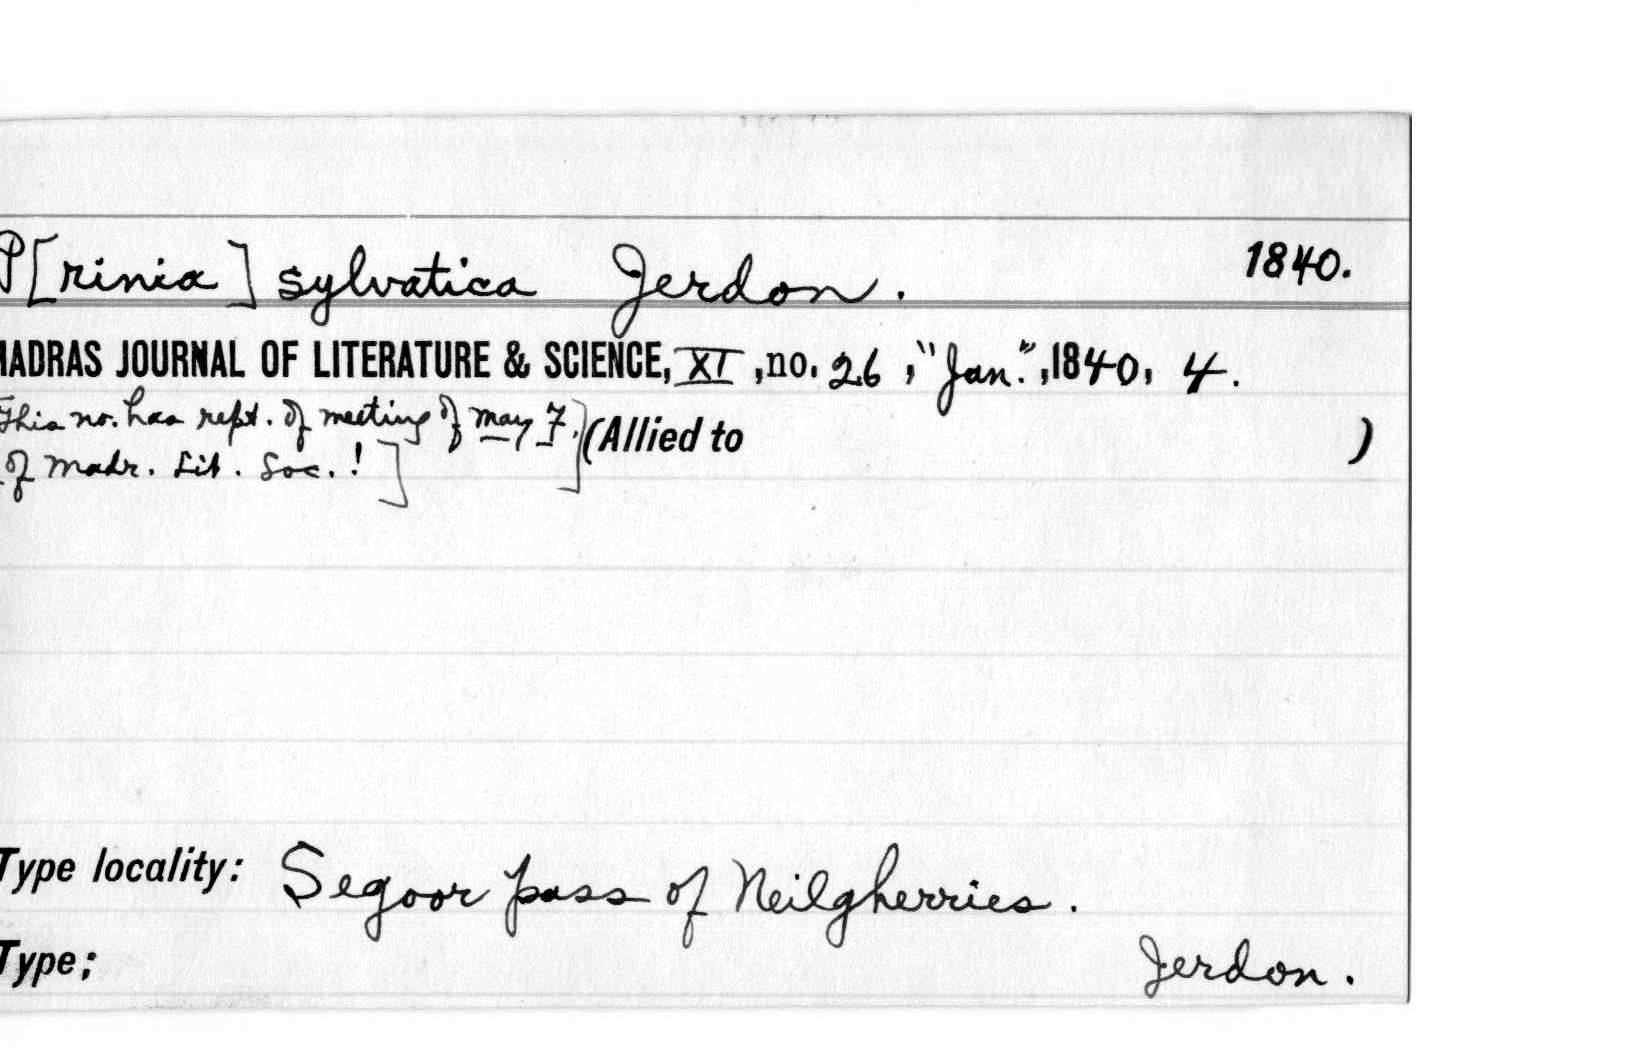 P[rinia] sylvatica Jerdon. 1840.
MADRAS JOURNAL OF LITERATURE & SCIENCE, XI, no. 26, "Jan.", 1840, 4.
This no. has rept. of meeting of May 7.] (Allied to )
of Madr. Lit. Soc.!]
Type locality: Segoor pass of Neilgherries.
Type; Jerdon.